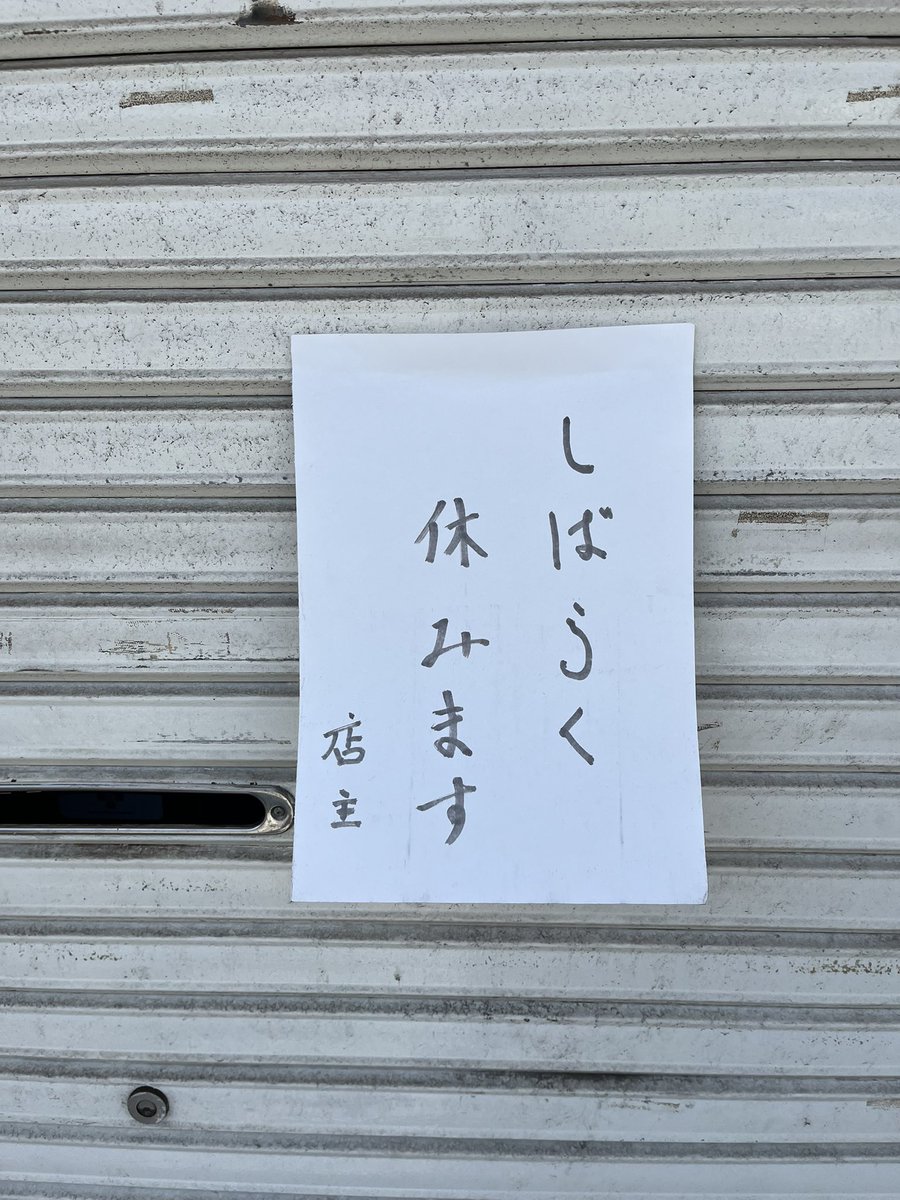 しばらく
休みます
店主